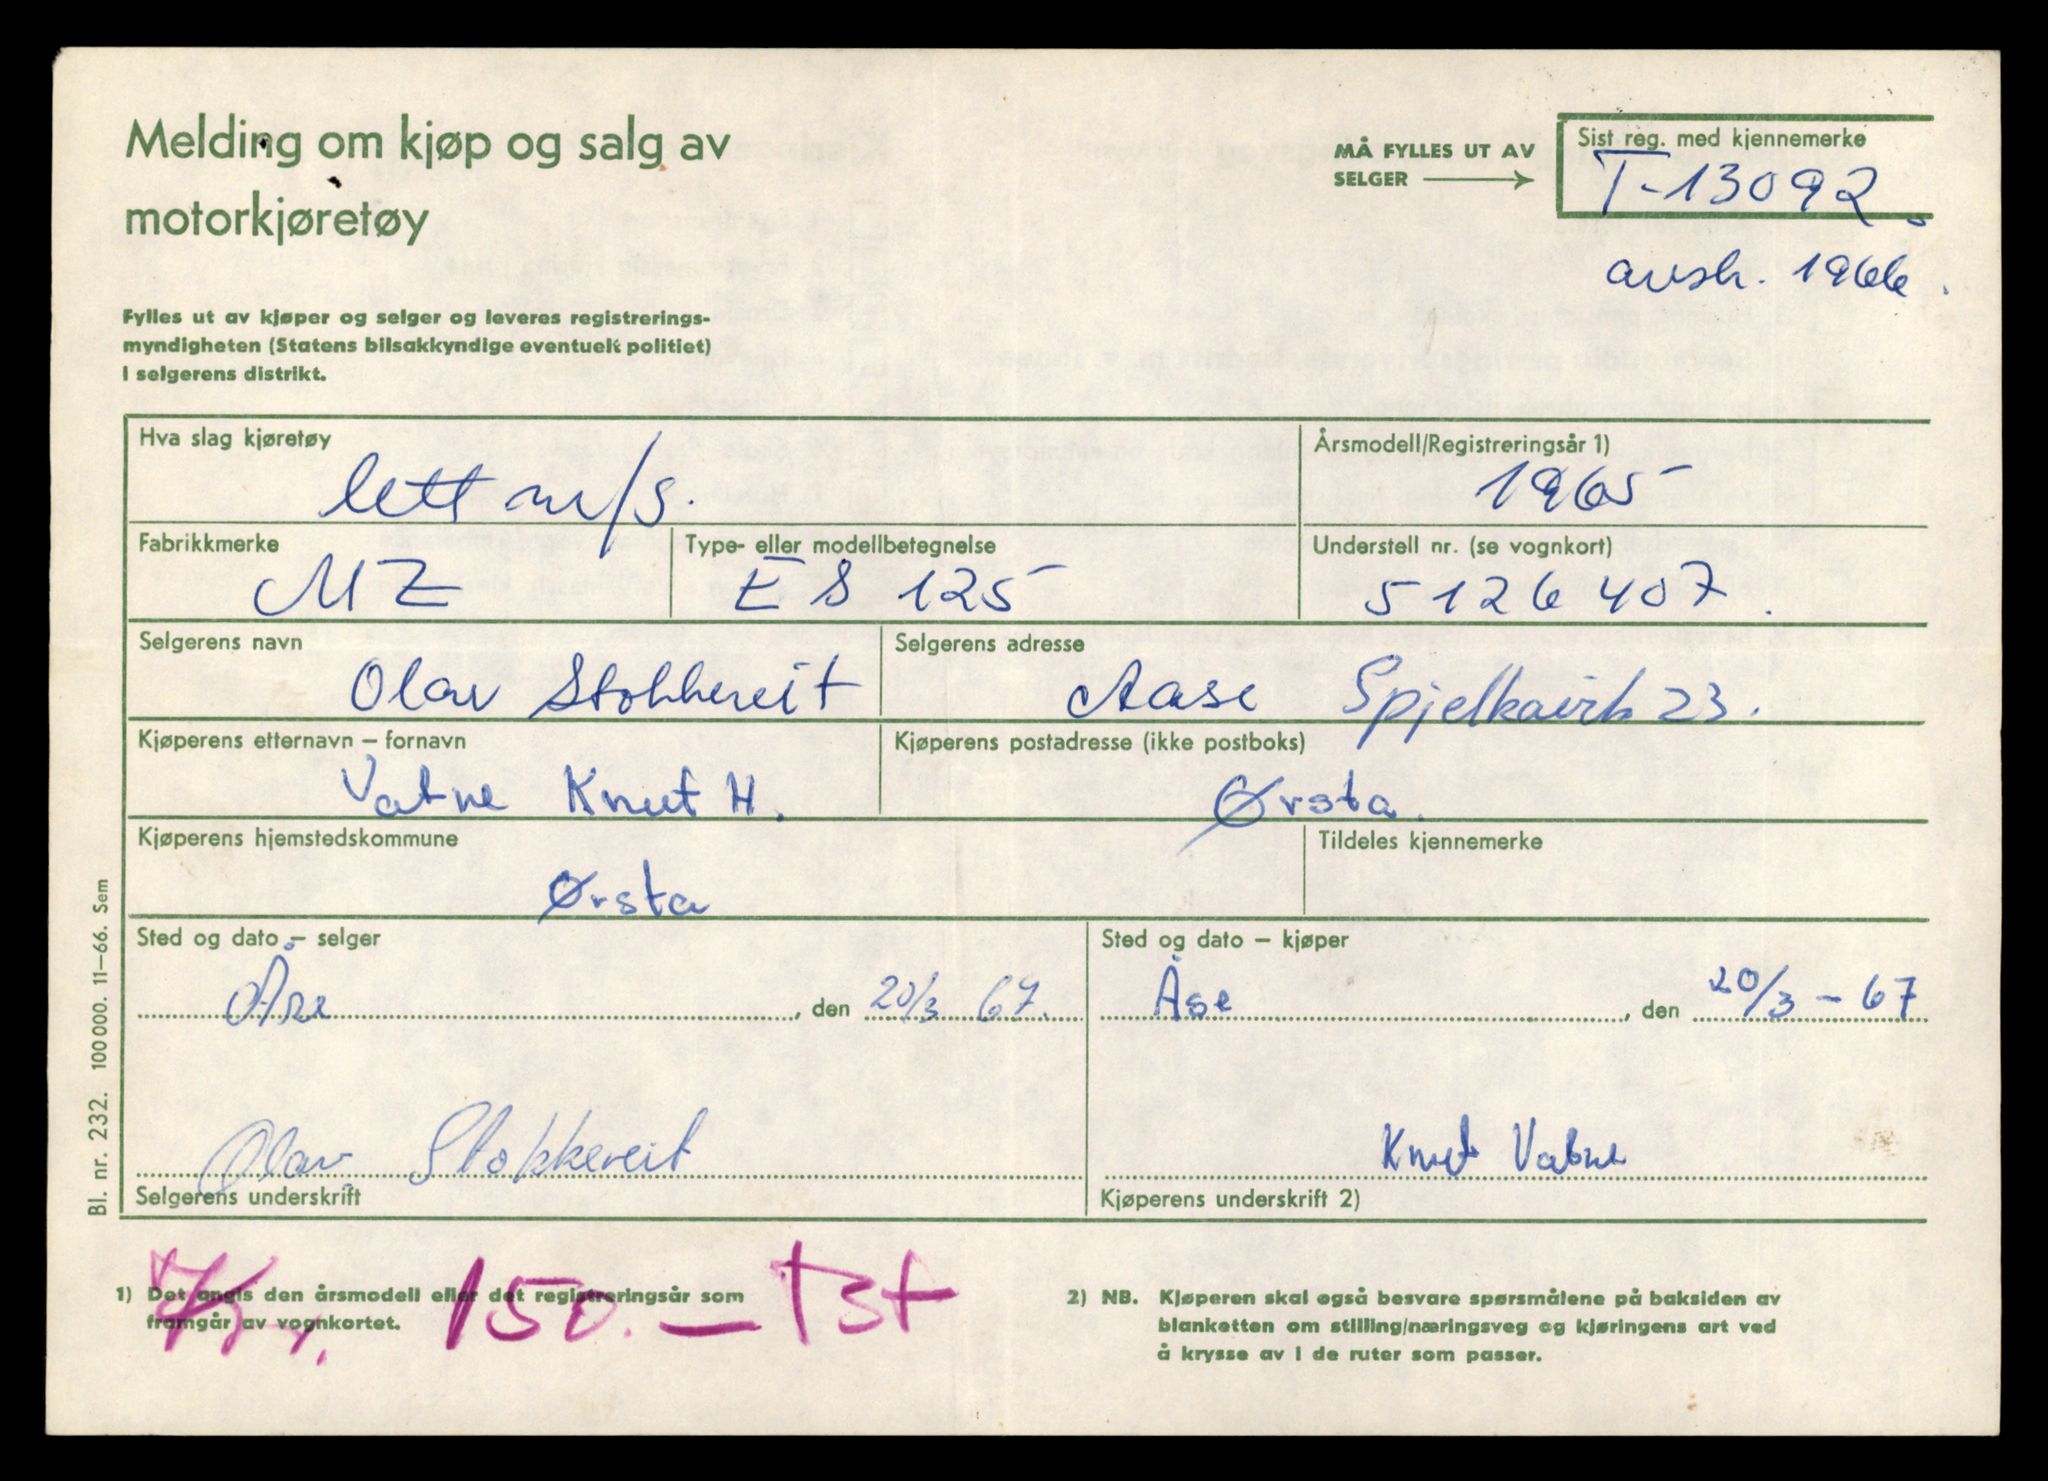 Melding om kjøp og salg av
motorkjøretøy
MÅ FYLLES UT AV
SELGER
Sist reg. med kjennemerke
T-13092
avsk. 1966.
Fylles ut av kjøper og selger og leveres registrerings-
myndigheten (Statens bilsakkyndige eventuelt politiet)
i selgerens distrikt.
Hva slag kjøretøy
lett m/s.
Årsmodell/Registreringsår 1)
1965
Fabrikkmerke
MZ
Type- eller modellbetegnelse
ES 125
Understell nr. (se vognkort)
5126407.
Selgerens navn
Olav Stokkereit
Selgerens adresse
Aase Spjelkavik 23.
Kjøperens etternavn – fornavn
Vatne Knut H.
Kjøperens postadresse (ikke postboks)
Ørsta.
Kjøperens hjemstedskommune
Ørsta
Tildeles kjennemerke
Sted og dato – selger
Åse, den 20/3 67.
Sted og dato – kjøper
Åse, den 20/3 – 67
Olav Stokkereit
Selgerens underskrift
Knut Vatne
Kjøperens underskrift 2)
Bl. nr. 232. 100 000. 11–66. Sem
1) Det angis den årsmodell eller det registreringsår som
framgår av vognkortet.
150.—
2) NB. Kjøperen skal også besvare spørsmålene på baksiden av
blanketten om stilling/næringsveg og kjøringens art ved
å krysse av i de ruter som passer.